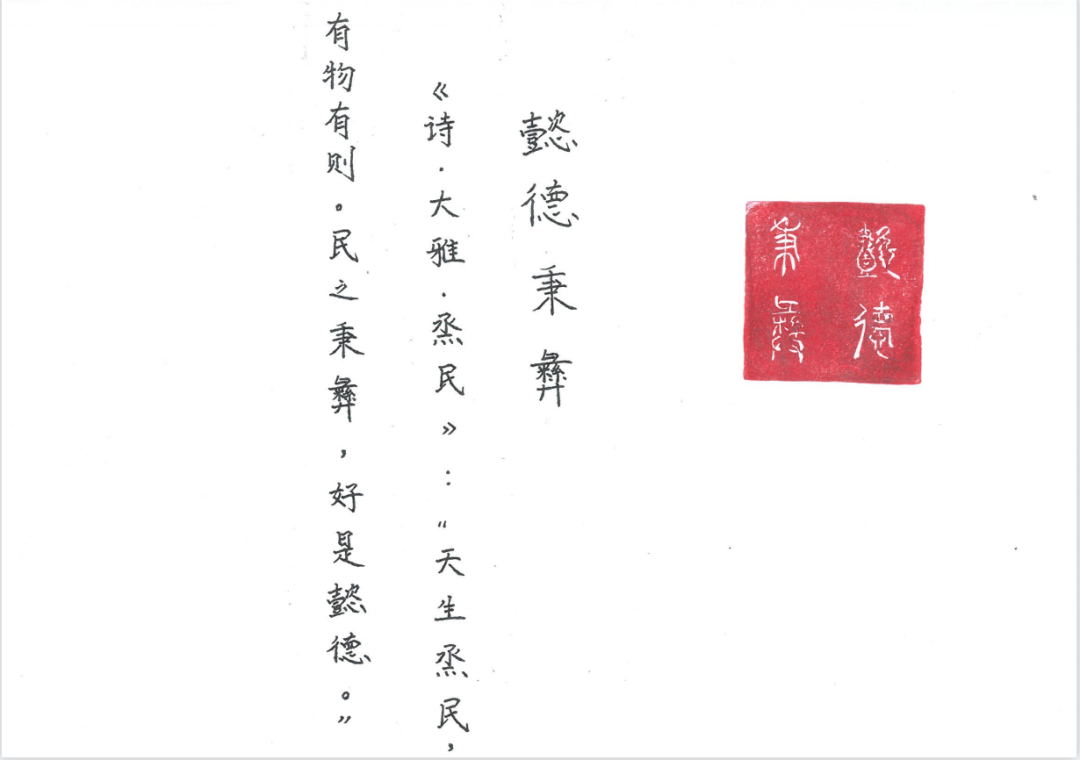 懿德
秉彝
懿德秉彝
《诗·大雅·烝民》:“天生烝民,
有物有则。民之秉彝,好是懿德。”